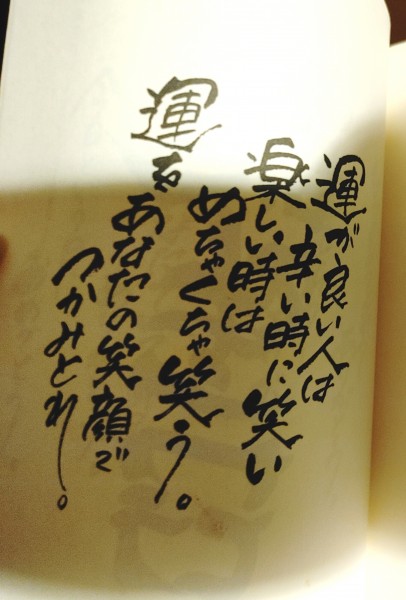 運が良い人は
辛い時に笑い
楽しい時は
めちゃくちゃ笑う。
運を
あなたの笑顔で
つかみとれ。